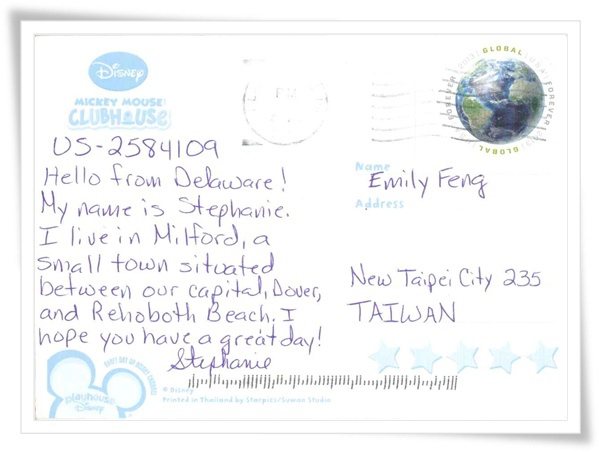 Disney
MICKEY MOUSE
CLUBHOUSE
US-2584109
Hello from Delaware!
My name is Stephanie.
I live in Milford, a
small town situated
between our capital, Dover,
and Rehoboth Beach. I
hope you have a great day!
Stephanie
PM
GLOBAL
FOREVER
GLOBAL
Name
Emily Feng
Address
New Taipei City 235
TAIWAN
playhouse
Disney
© Disney
Printed in Thailand by Starpics/Suwan Studio